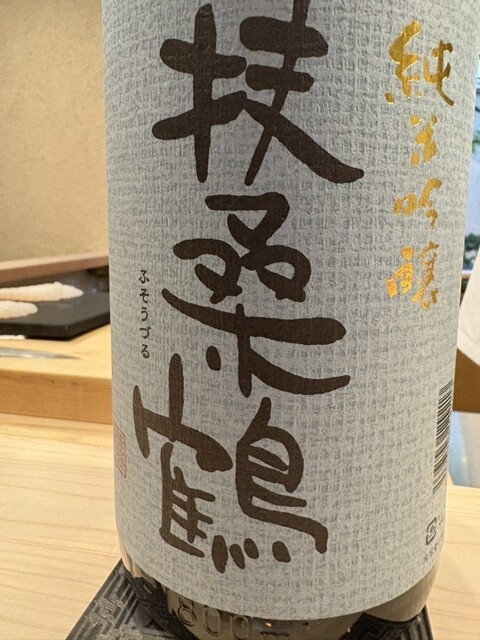 純米吟醸
扶桑鶴
ふそうづる
1800